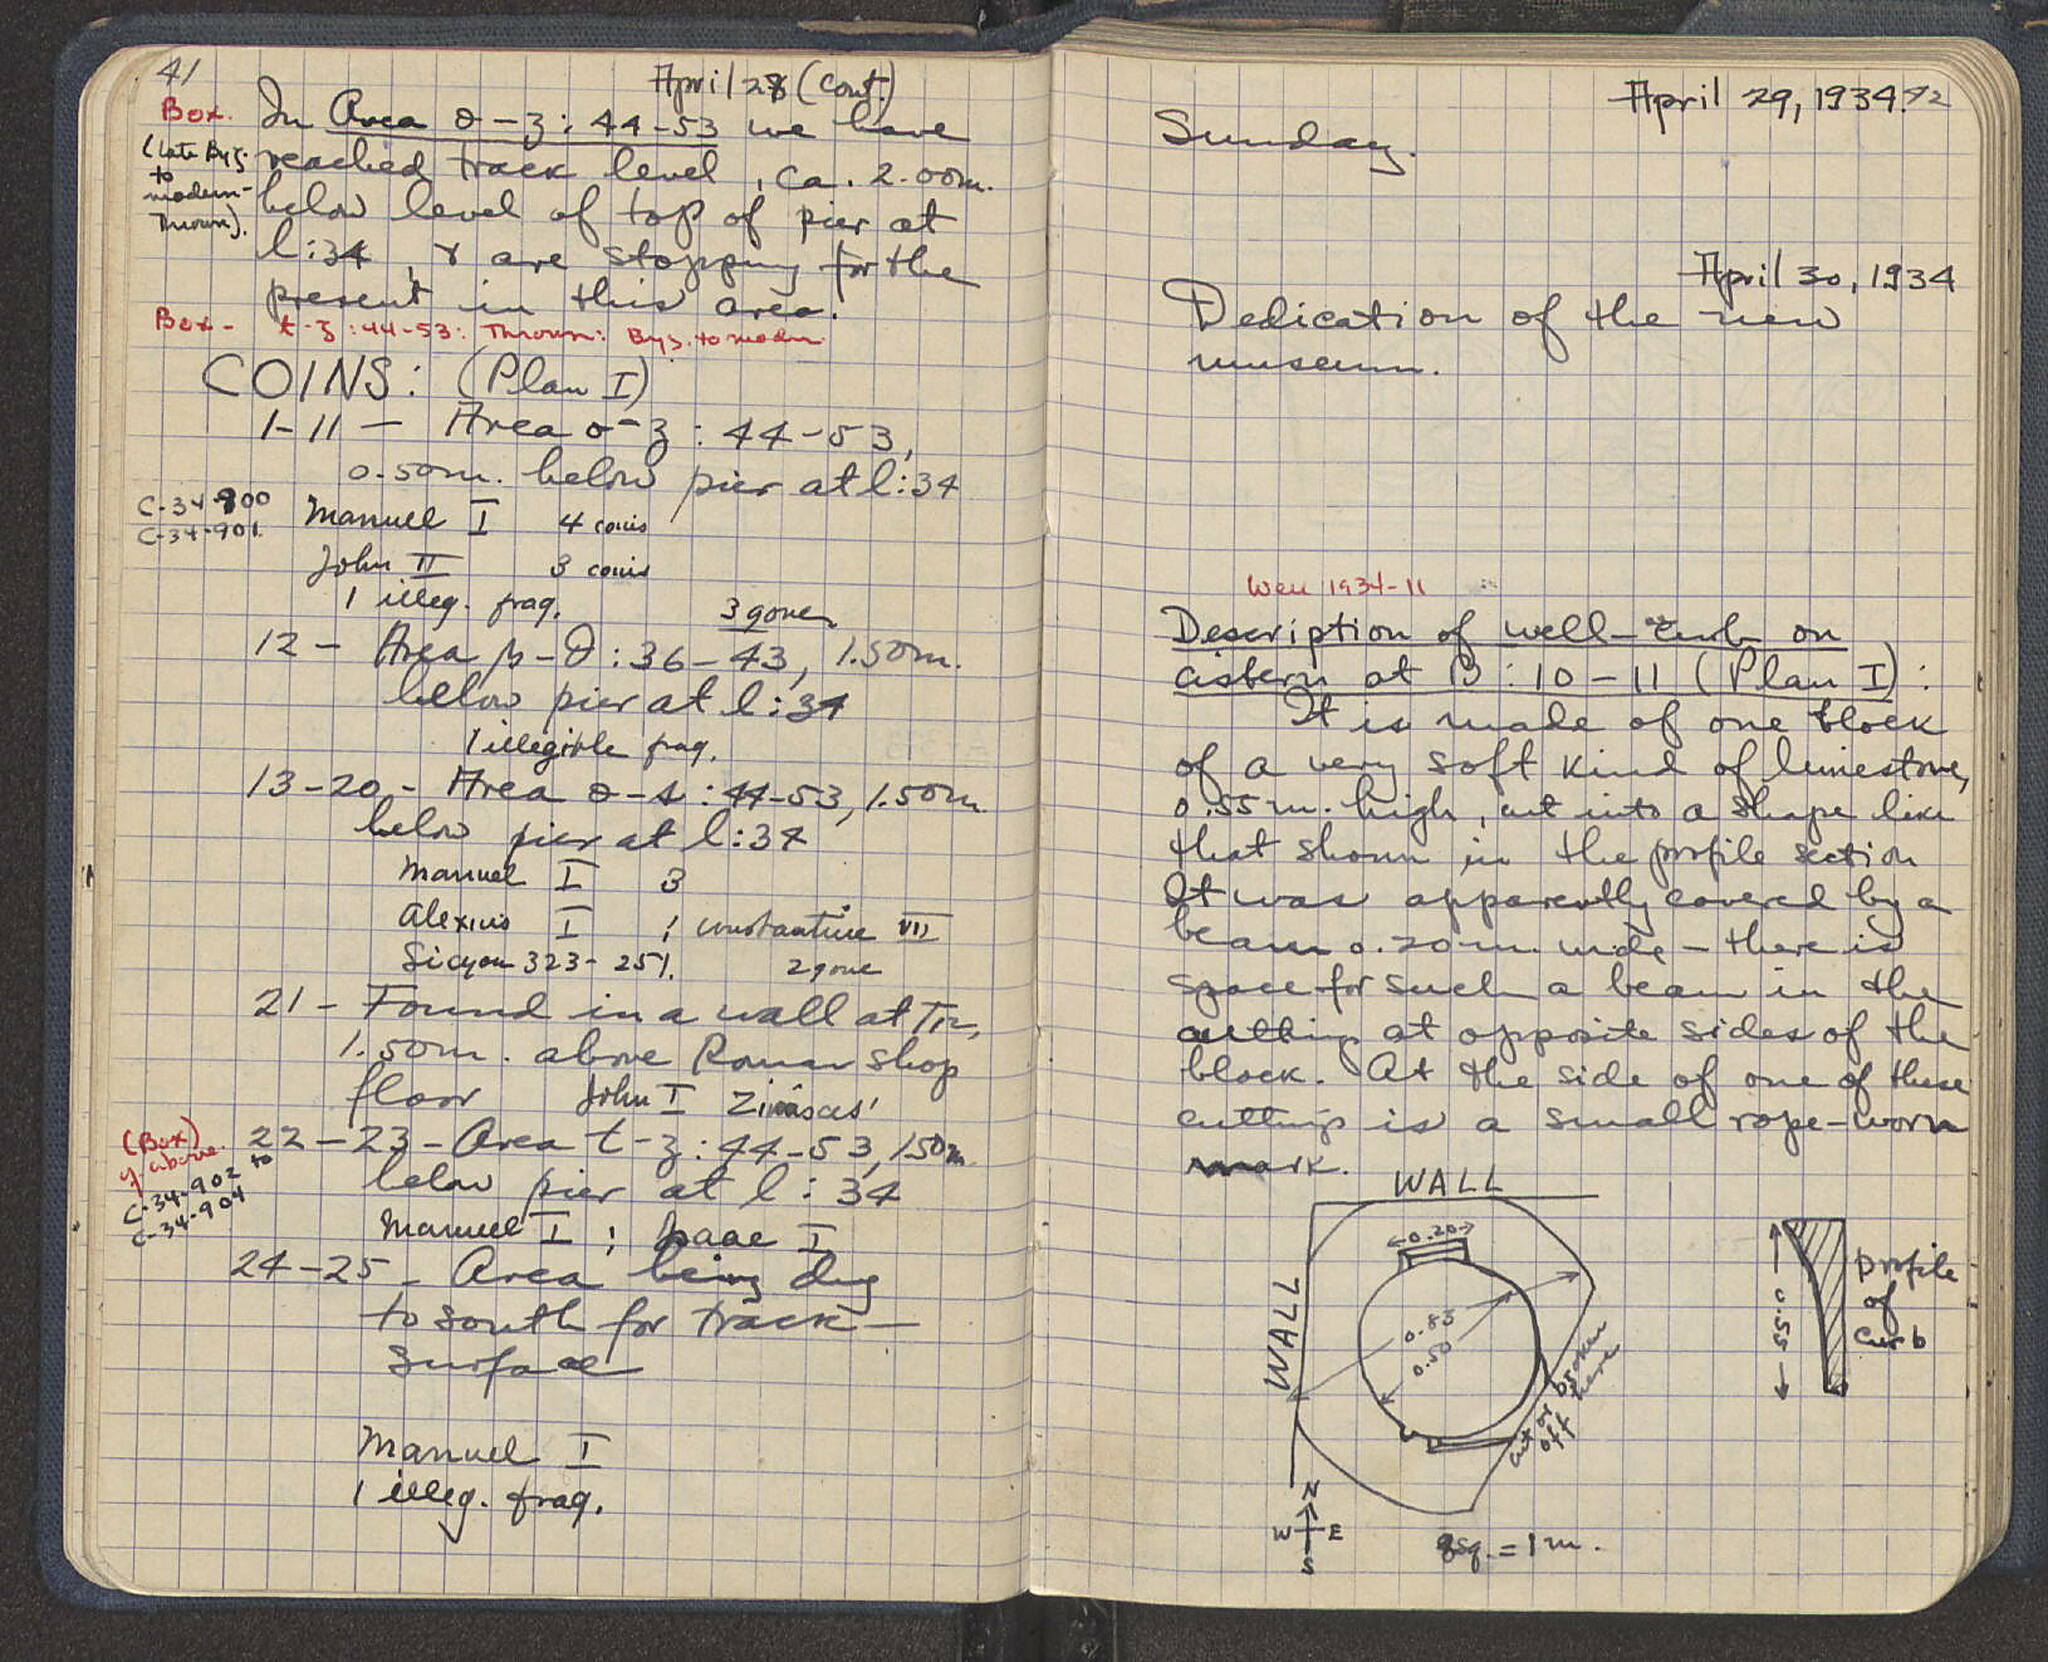 41
April 28 (cont.)
Box. In Area θ-z : 44-53 we have
(Late Byz. to modern- Thrown).
reached track level, ca. 2.00m.
below level of top of pier at
l:34, & are stopping for the
present in this area.
Box - t-z : 44-53 : Thrown : Byz. to modn.
COINS: (Plan I)
1-11 - Area θ-z : 44-53,
0.50m. below pier at l:34
C-34-900
C-34-901
Manuel I 4 coins
John II 3 coins
1 illeg. frag. 3 gone
12 - Area -θ : 36-43, 1.50m.
below pier at l:34
1 illegible frag.
13-20 - Area θ-s : 44-53, 1.50m
below pier at l:34
Manuel I 3
Alexius I ; Constantine VII
Sicyon 323-251. 2 gone
21 - Found in a wall at
1.50m. above Roman shop
floor John I Zimisces
(Box) cf above.
C-34-902 to
C-34-904
22-23 - Area t-z : 44-53, 1.50m
below pier at l:34
Manuel I ; Isaac I
24-25 - Area being dug
to south for track -
surface
Manuel I
1 illeg. frag.
April 29, 1934. 42
Sunday.
April 30, 1934
Dedication of the new
museum.
Well 1934-11
Description of well-curb on
cistern at B : 10-11 (Plan I) :
It is made of one block
of a very soft kind of limestone,
0.55m. high, cut into a shape like
that shown in the profile section
It was apparently covered by a
beam 0.20m. wide - there is
space for such a beam in the
cutting at opposite sides of the
block. At the side of one of these
cuttings is a small rope-worn
mark.
WALL
0.20
WALL
0.83
0.50
broken here
or
cut off
0.55
profile
of
curb
N
W E
S
8sq. = 1 m.